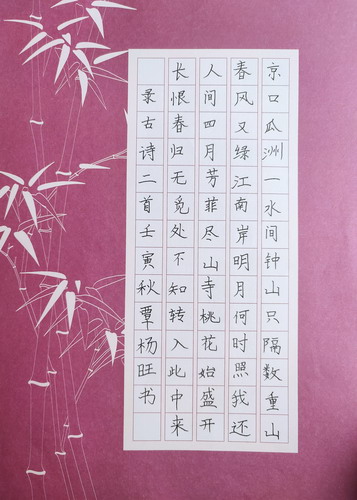 京口瓜洲一水间钟山只隔数重山
春风又绿江南岸明月何时照我还
人间四月芳菲尽山寺桃花始盛开
长恨春归无觅处不知转入此中来
录古诗二首壬寅秋覃杨旺书